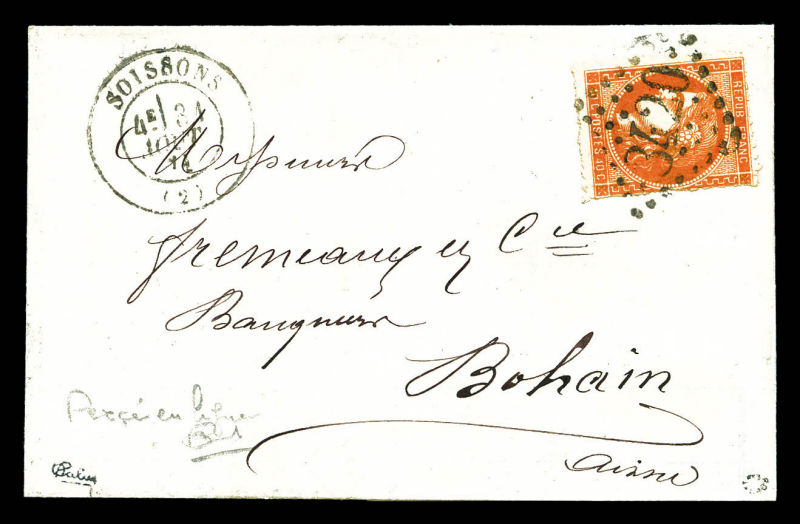 SOISSONS
4E 31
AOUT
71
(2)
REPUB FRANC
POSTES 40C
3420
Messieurs
Fremeaux et Cie
Banquiers
Bohain
Aisne
Percé en lignes